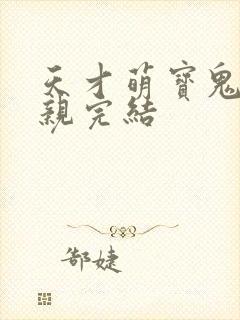 天才萌寶鬼
親完結
郜婕